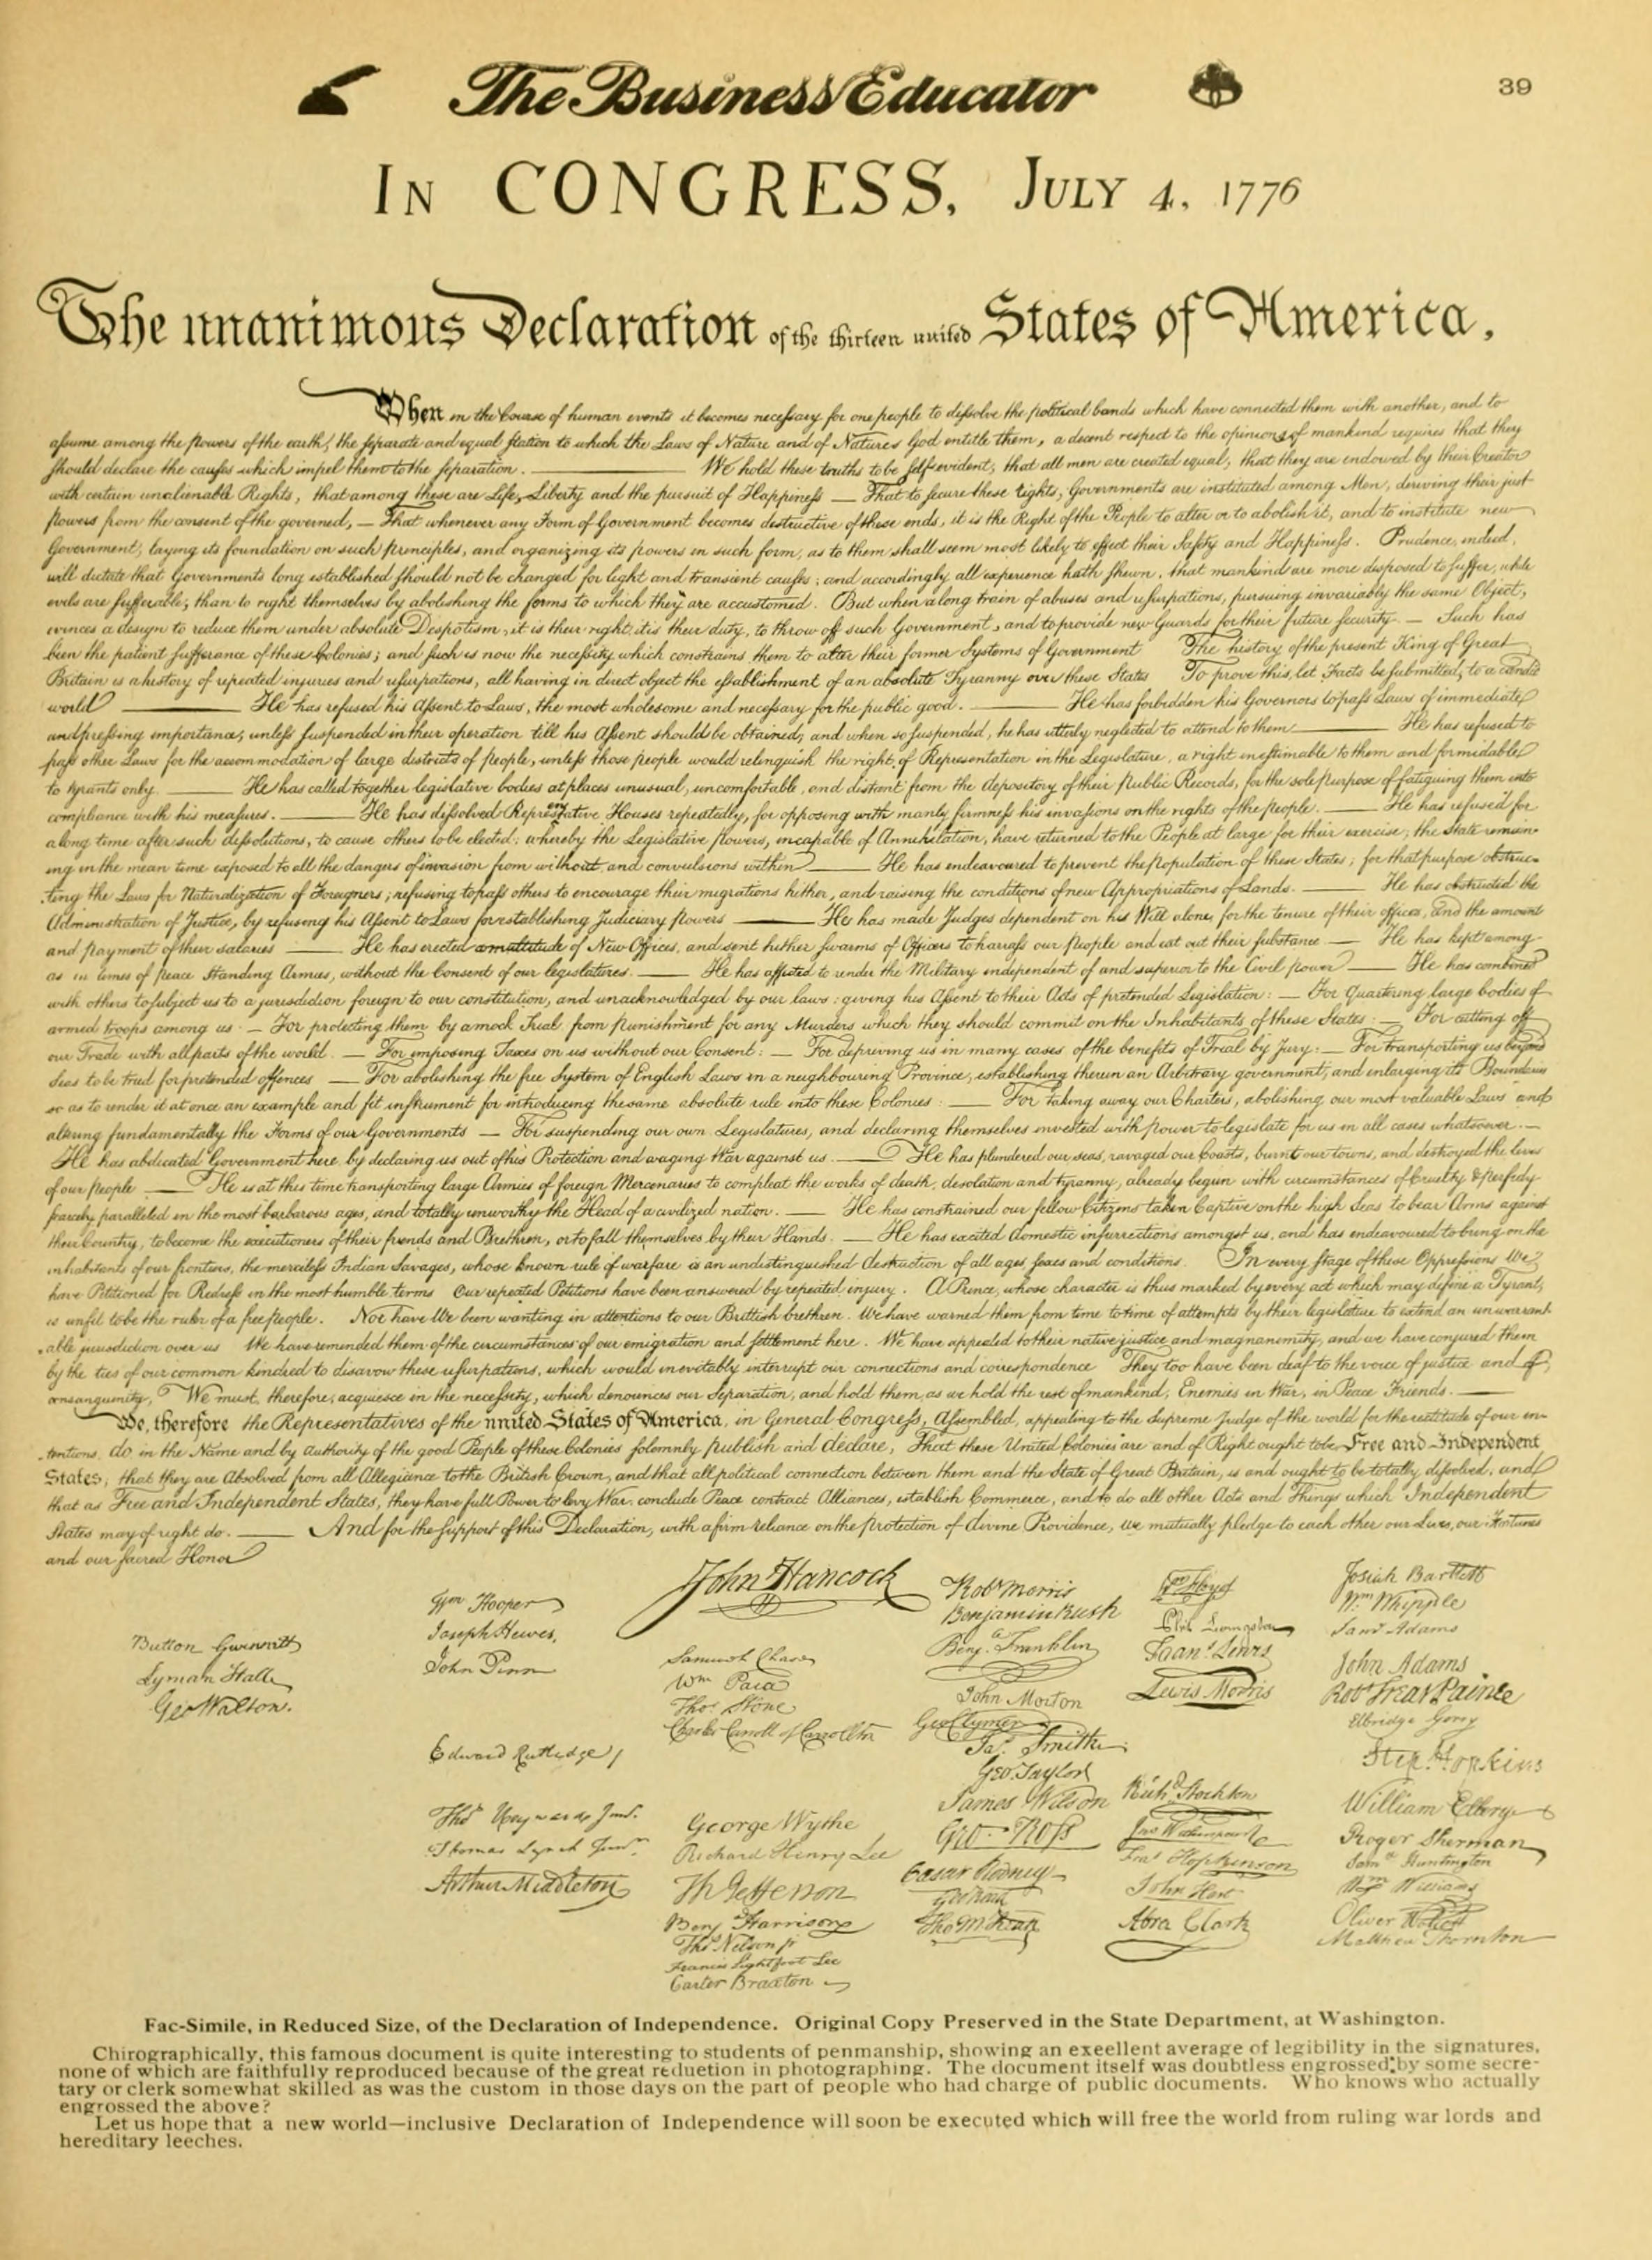 The Business Educator
39
IN CONGRESS, JULY 4, 1776
The unanimous Declaration of the thirteen united States of America,
When in the Course of human events it becomes necessary for one people to dissolve the political bands which have connected them with another, and to
assume among the powers of the earth, the separate and equal station to which the Laws of Nature and of Nature's God entitle them, a decent respect to the opinions of mankind requires that they
should declare the causes which impel them to the separation. — We hold these truths to be self-evident, that all men are created equal, that they are endowed by their Creator
with certain unalienable Rights, that among these are Life, Liberty and the pursuit of Happiness — That to secure these rights, Governments are instituted among Men, deriving their just
powers from the consent of the governed, — That whenever any Form of Government becomes destructive of these ends, it is the Right of the People to alter or to abolish it, and to institute new
Government, laying its foundation on such principles, and organizing its powers in such form, as to them shall seem most likely to effect their Safety and Happiness. Prudence, indeed,
will dictate that Governments long established should not be changed for light and transient causes; and accordingly all experience hath shewn, that mankind are more disposed to suffer, while
evils are sufferable, than to right themselves by abolishing the forms to which they are accustomed. But when a long train of abuses and usurpations, pursuing invariably the same Object,
evinces a design to reduce them under absolute Despotism, it is their right, it is their duty, to throw off such Government, and to provide new Guards for their future security. — Such has
been the patient sufferance of these Colonies; and such is now the necessity which constrains them to alter their former Systems of Government The history of the present King of Great
Britain is a history of repeated injuries and usurpations, all having in direct object the establishment of an absolute Tyranny over these States To prove this, let Facts be submitted to a candid
world — He has refused his Assent to Laws, the most wholesome and necessary for the public good. — He has forbidden his Governors to pass Laws of immediate
and pressing importance, unless suspended in their operation till his Assent should be obtained; and when so suspended, he has utterly neglected to attend to them — He has refused to
pass other Laws for the accommodation of large districts of people, unless those people would relinquish the right of Representation in the Legislature, a right inestimable to them and formidable
to tyrants only. — He has called together legislative bodies at places unusual, uncomfortable, and distant from the depository of their Public Records, for the sole purpose of fatiguing them into
compliance with his measures. — He has dissolved Representative Houses repeatedly, for opposing with manly firmness his invasions on the rights of the people. — He has refused for
a long time after such dissolutions, to cause others to be elected; whereby the Legislative powers, incapable of Annihilation, have returned to the People at large for their exercise; the State remain-
ing in the mean time exposed to all the dangers of invasion from without and convulsions within — He has endeavoured to prevent the population of these States; for that purpose obstruc-
ting the Laws for Naturalization of Foreigners; refusing to pass others to encourage their migrations hither, and raising the conditions of new Appropriations of Lands. — He has obstructed the
Administration of Justice, by refusing his Assent to Laws for establishing Judiciary powers — He has made Judges dependent on his Will alone, for the tenure of their offices, and the amount
and payment of their salaries — He has erected a multitude of New Offices, and sent hither swarms of Officers to harrass our people and eat out their substance — He has kept among
us in times of peace Standing Armies, without the Consent of our legislatures. — He has affected to render the Military independent of and superior to the Civil power — He has combined
with others to subject us to a jurisdiction foreign to our constitution, and unacknowledged by our laws; giving his Assent to their Acts of pretended Legislation: — For Quartering large bodies of
armed troops among us — For protecting them by a mock Trial from punishment for any Murders which they should commit on the Inhabitants of these States: — For cutting off
our Trade with all parts of the world. — For imposing Taxes on us without our Consent: — For depriving us in many cases of the benefits of Trial by Jury: — For transporting us beyond
Seas to be tried for pretended offences — For abolishing the free System of English Laws in a neighbouring Province, establishing therein an Arbitrary government, and enlarging its Boundaries
so as to render it at once an example and fit instrument for introducing the same absolute rule into these Colonies: — For taking away our Charters, abolishing our most valuable Laws and
altering fundamentally the Forms of our Governments — For suspending our own Legislatures, and declaring themselves invested with power to legislate for us in all cases whatsoever. —
He has abdicated Government here, by declaring us out of his Protection and waging War against us. — He has plundered our seas, ravaged our Coasts, burnt our towns, and destroyed the lives
of our people — He is at this time transporting large Armies of foreign Mercenaries to compleat the works of death, desolation and tyranny, already begun with circumstances of Cruelty & perfidy
scarcely paralleled in the most barbarous ages, and totally unworthy the Head of a civilized nation. — He has constrained our fellow Citizens taken Captive on the high Seas to bear Arms against
their Country, to become the executioners of their friends and Brethren, or to fall themselves by their Hands. — He has excited domestic insurrections amongst us, and has endeavoured to bring on the
inhabitants of our frontiers, the merciless Indian Savages, whose known rule of warfare is an undistinguished destruction of all ages sexes and conditions. In every stage of these Oppressions We
have Petitioned for Redress in the most humble terms Our repeated Petitions have been answered by repeated injury. A Prince, whose character is thus marked by every act which may define a Tyrant,
is unfit to be the ruler of a free people. Nor have We been wanting in attentions to our Brittish brethren. We have warned them from time to time of attempts by their legislature to extend an unwarrant-
able jurisdiction over us We have reminded them of the circumstances of our emigration and settlement here. We have appealed to their native justice and magnanimity, and we have conjured them
by the ties of our common kindred to disavow these usurpations, which would inevitably interrupt our connections and correspondence They too have been deaf to the voice of justice and of
consanguinity, We must, therefore, acquiesce in the necessity, which denounces our Separation, and hold them, as we hold the rest of mankind, Enemies in War, in Peace Friends. —
We, therefore the Representatives of the united States of America, in General Congress, Assembled, appealing to the Supreme Judge of the world for the rectitude of our in-
tentions, do, in the Name and by authority of the good People of these Colonies solemnly publish and declare, That these United Colonies are and of Right ought to be Free and Independent
States; that they are Absolved from all Allegiance to the British Crown, and that all political connection between them and the State of Great Britain, is and ought to be totally dissolved; and
that as Free and Independent States, they have full Power to levy War, conclude Peace contract Alliances, establish Commerce, and to do all other Acts and Things which Independent
States may of right do. — And for the support of this Declaration, with a firm reliance on the protection of divine Providence, we mutually pledge to each other our Lives, our Fortunes
and our sacred Honor
Button Gwinnett
Lyman Hall
Geo Walton.
Wm Hooper
Joseph Hewes,
John Penn
Edward Rutledge /
Thos Heyward Junr.
Thomas Lynch Junr.
Arthur Middleton
John Hancock
Samuel Chase
Wm Paca
Thos Stone
Charles Carroll of Carrollton
George Wythe
Richard Henry Lee
Th Jefferson
Benj Harrison
Thos Nelson jr
Francis Lightfoot Lee
Carter Braxton
Robt Morris
Benjamin Rush
Benja. Franklin
John Morton
Geo Clymer
Jas. Smith
Geo. Taylor
James Wilson
Geo. Ross
Caesar Rodney
Geo Read
Tho M:Kean
Wm Floyd
Phil. Livingston
Frans. Lewis
Lewis Morris
Richd. Stockton
Jno Witherspoon
Fras. Hopkinson
John Hart
Abra Clark
Josiah Bartlett
Wm Whipple
Saml Adams
John Adams
Robt Treat Paine
Elbridge Gerry
Step. Hopkins
William Ellery
Roger Sherman
Saml Huntington
Wm Williams
Oliver Wolcott
Matthew Thornton
Fac-Simile, in Reduced Size, of the Declaration of Independence. Original Copy Preserved in the State Department, at Washington.
Chirographically, this famous document is quite interesting to students of penmanship, showing an exeellent average of legibility in the signatures,
none of which are faithfully reproduced because of the great reduetion in photographing. The document itself was doubtless engrossed by some secre-
tary or clerk somewhat skilled as was the custom in those days on the part of people who had charge of public documents. Who knows who actually
engrossed the above?
Let us hope that a new world—inclusive Declaration of Independence will soon be executed which will free the world from ruling war lords and
hereditary leeches.